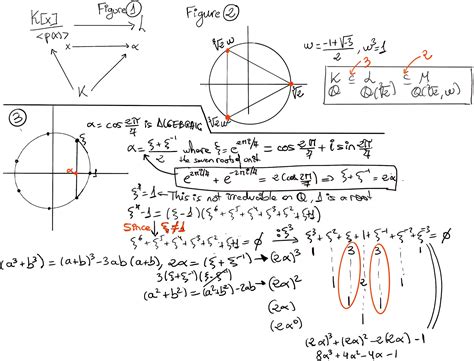 Figure 1
K[x]
<p(x)>
L
x
α
K
Figure 2
∛2 w
∛2
w = (-1+√-3)/2, w³=1
3
2
K ⊆ L ⊆ M
Q Q(∛2) Q(∛2, w)
3
α = cos 2π/7 is ALGEBRAIC
α = (ξ+ξ⁻¹)/2 where ξ = e^(2πi/7) = cos 2π/7 + i sin 2π/7
the seven root of unit
e^(2πi/7) + e^(-2πi/7) = 2(cos 2π/7) ⇒ ξ+ξ⁻¹ = 2α
ξ
α
1
ξ⁷=1 ← This is not irreducible on Q, 1 is a root
ξ⁷-1 = (ξ-1)(ξ⁶+ξ⁵+ξ⁴+ξ³+ξ²+ξ+1)
Since ξ≠1
ξ⁶+ξ⁵+ξ⁴+ξ³+ξ²+ξ+1=0
:ξ³
ξ³+ξ²+ξ+1+ξ⁻¹+ξ⁻²+ξ⁻³=0
(a³+b³) = (a+b)³-3ab(a+b), 2α = (ξ+ξ⁻¹) → (2α)³ 1 3 3 1
(a²+b²) = (a+b)²-2ab → (2α)² 1 2 1
(2α) 1 1
(2α⁰) 1
(2α)³+(2α)²-2(2α)-1
8α³+4α²-4α-1